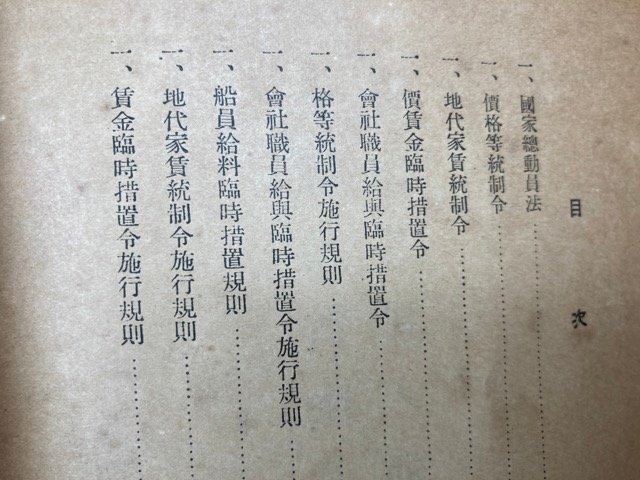 目次
一、國家總動員法
一、價格等統制令
一、地代家賃統制令
一、價賃金臨時措置令
一、會社職員給與臨時措置令
一、格等統制令施行規則
一、會社職員給與臨時措置令施行規則
一、船員給料臨時措置規則
一、地代家賃統制令施行規則
一、賃金臨時措置令施行規則